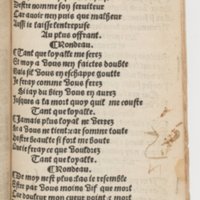 Destre nomme son seruiteur
Car auoir nen puis que malheur
Aussi ie laisse lentrepuse
Au plus offrant.
Rondeau.
Tant que loyalle me serez
Et moy a vous nen faictes doubte
Mais sil vous en eschappe goutte
Je feray comme vous ferez
Si iay bu bien vous en aurez
Jusques a la mort quoy quil me couste
Tant que loyalle.
Jamais plus loyal ne verrez
Et a vous me tient car somme toute
Destre beaulte si fort me boute
Que ie feray ce que vouldrez
Tant que loyalle.
Rondeau.
De moy nest plus: las ie resemble
Estre par vous moins vif que mort
Car douleur mon cueur point et mort